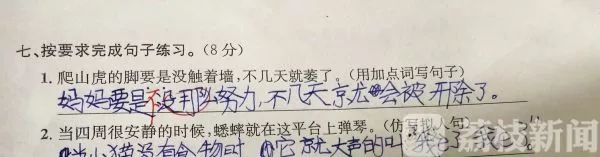 七、按要求完成句子练习。(8 分)
1. 爬山虎的脚要是没触着墙,不几天就萎了。(用加点词写句子)
妈妈要是不努力,不几天就会被开除了。
2. 当四周很安静的时候,蟋蟀就在这平台上弹琴。(仿写句)
当小猫没有食物时,它就大声的叫
荔枝新闻